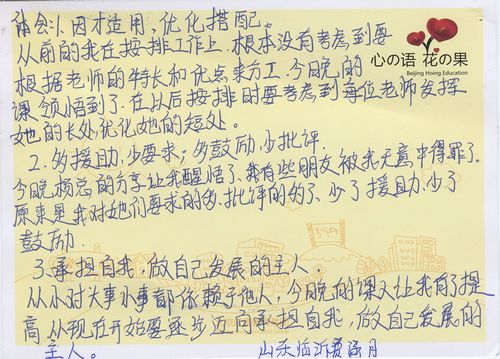 体会1、因才适用,优化搭配。
从前的我在按排工作上,根本没有考虑到要
根据老师的特长和优点来分工.今晚的
课领悟到了.在以后按排时要考虑到每位老师发挥
她的长处,优化她的短处。
心の语 花の果
Beijing Hoing Education
2.多援助,少要求;多鼓励,少批评.
今晚 的分享让我醒悟了、我有些朋友被我无意中得罪了.
原来是我对她们要求的多、批评的多了、少了援助、少了
鼓励.
3.承担自我,做自己发展的主人.
从小对大事小事都依赖于他人,今晚的课又让我有了提
高.从现在开始要逐步迈向承担自我,做自己发展的
主人。
山东临沂 月